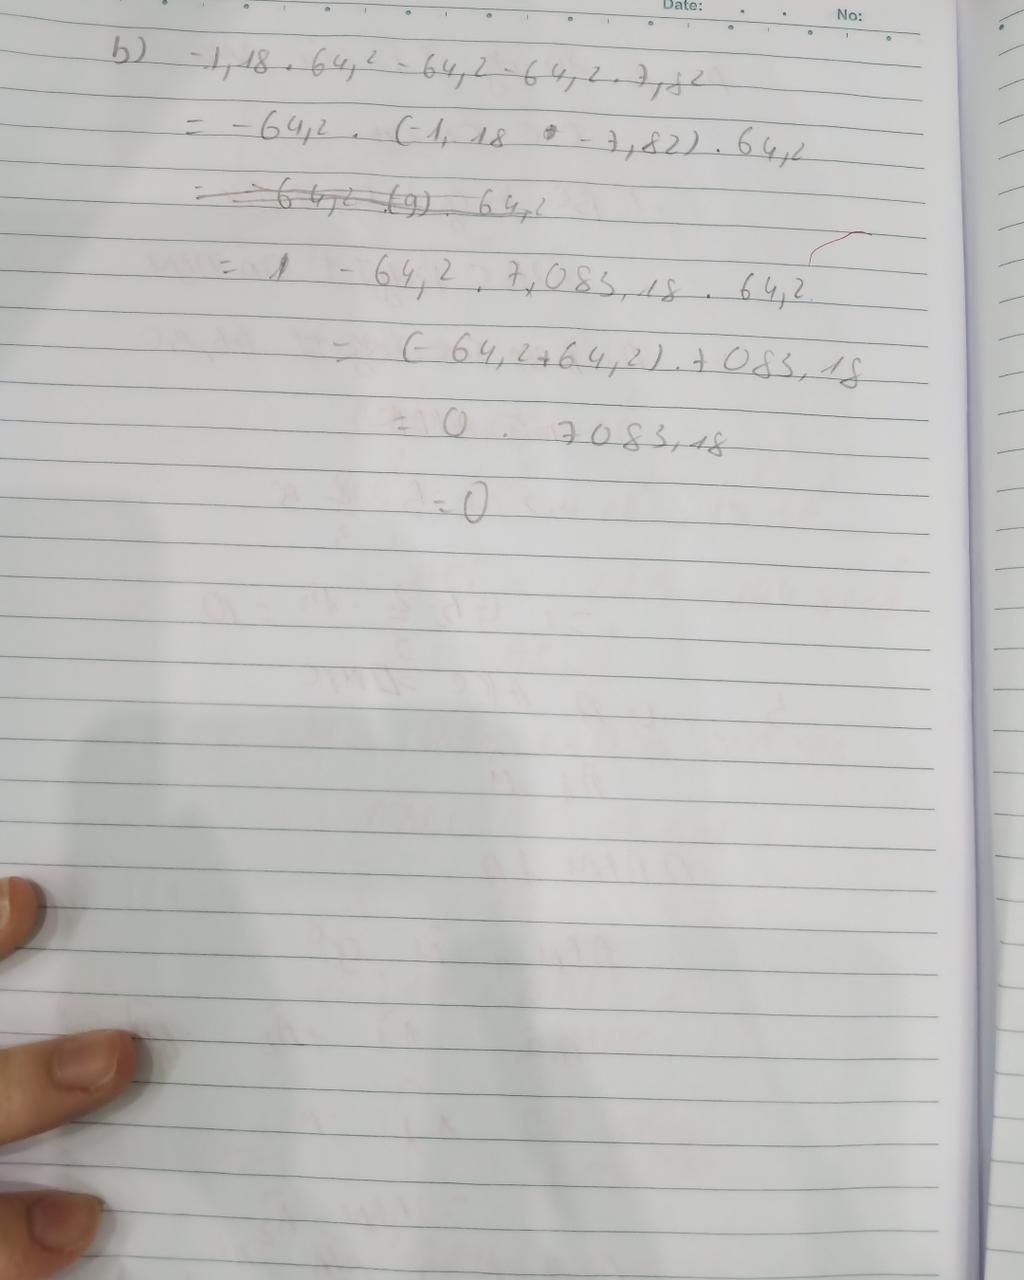 Date: No:
b) -1,18 . 64,2 - 64,2 - 64,2 . 7,82
= -64,2 . (-1,18 - 7,82) . 64,2
= -64,2 . (9) . 64,2
= 1 - 64,2 . 7,083,18 . 64,2
= (-64,2+64,2) . 7083,18
= 0 . 7083,18
= 0